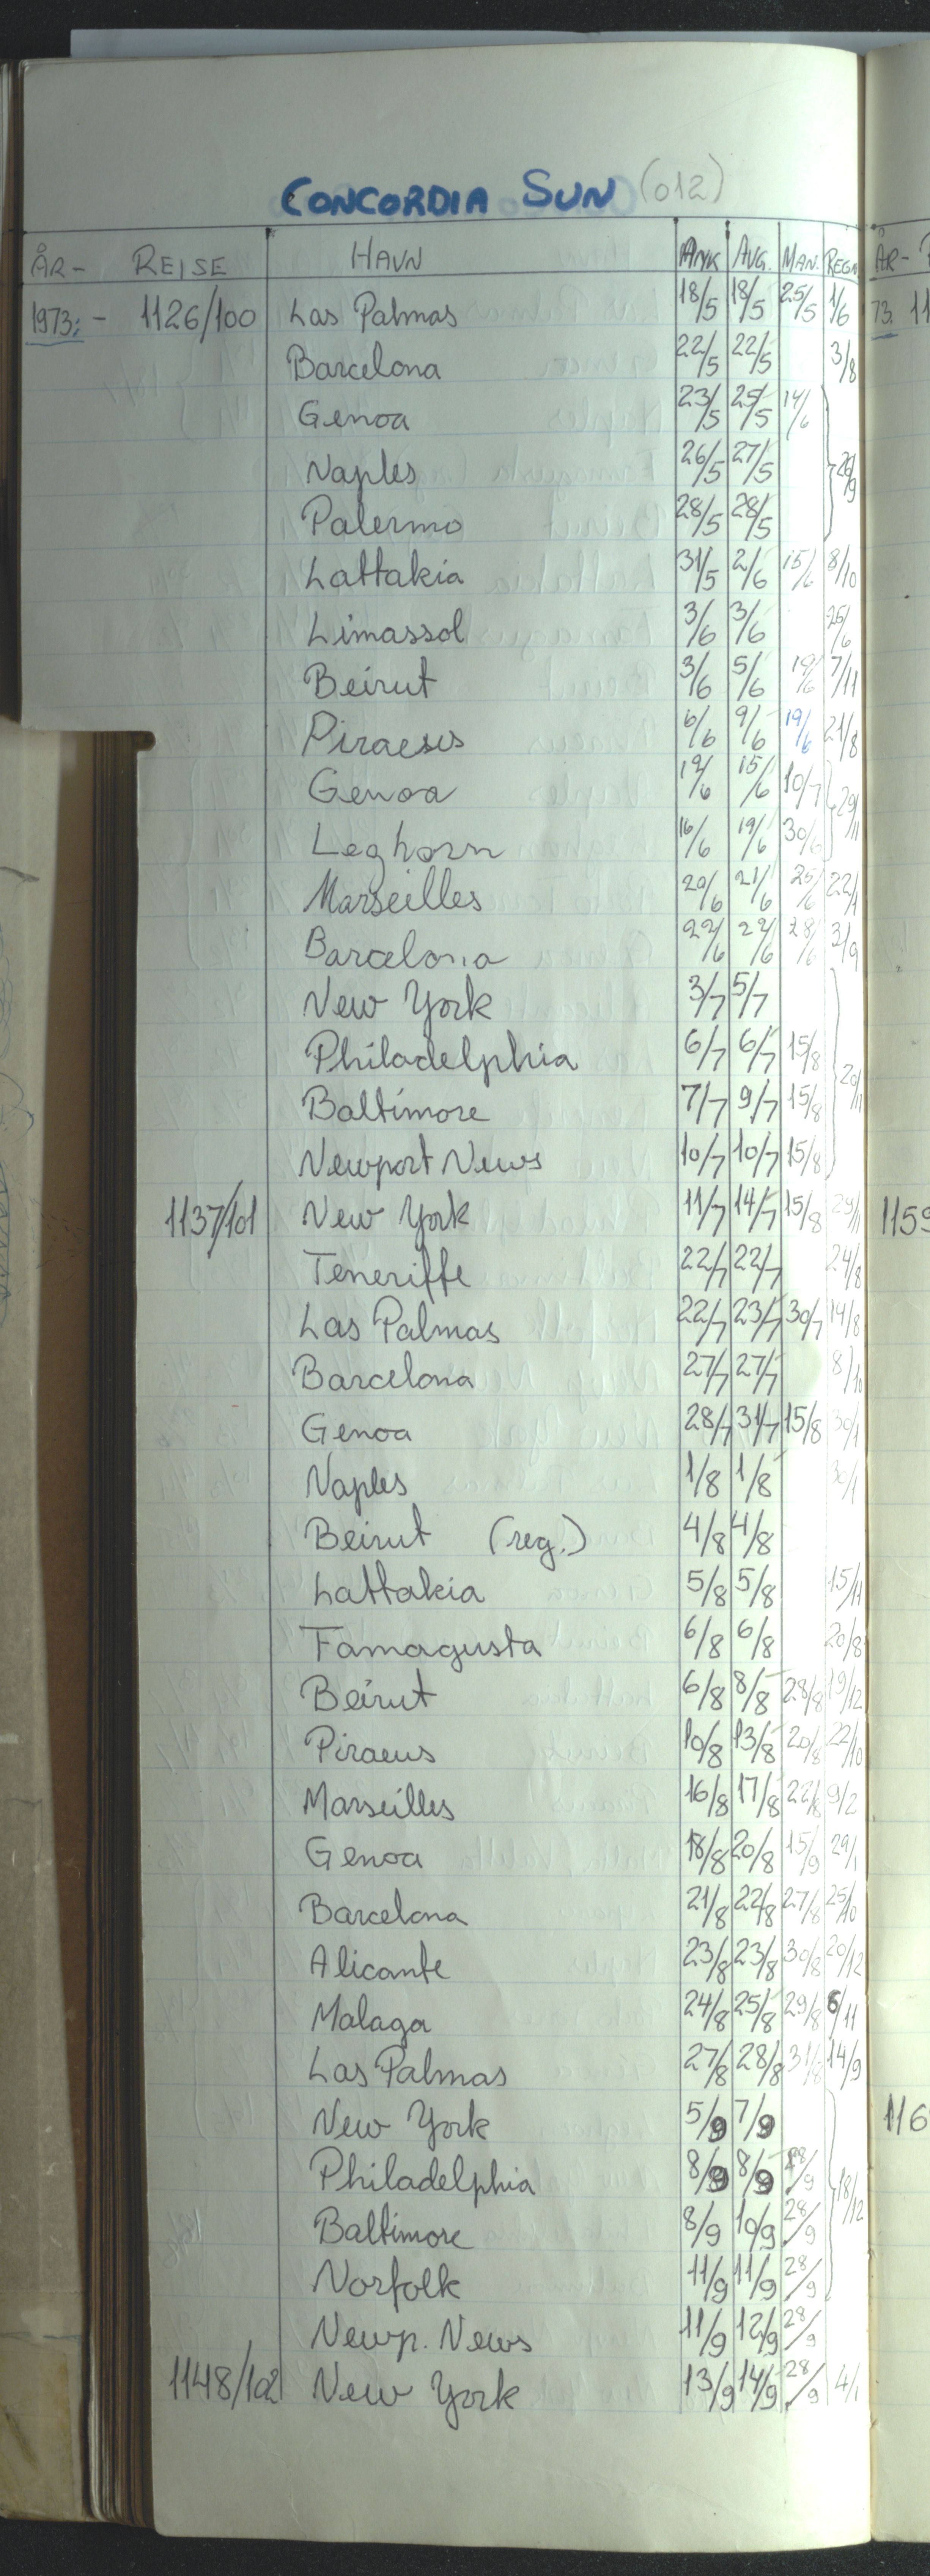 CONCORDIA SUN (012)
ÅR- REISE HAVN ANK AVG. MAN. REGN ÅR-
1973:- 1126/100 Las Palmas 18/5 18/5 25/5 1/6 73. 11
Barcelona 22/5 22/5 3/8
Genoa 23/5 25/5 14/6
Naples 26/5 27/5 26/9
Palermo 28/5 28/5
Lattakia 31/5 2/6 15/6 8/10
Limassol 3/6 3/6 26/6
Beirut 3/6 5/6 19/6 7/11
Piraeus 6/6 9/6 19/6 21/8
Genoa 12/6 15/6 10/7 29/11
Leghorn 16/6 19/6 30/6
Marseilles 20/6 21/6 25/6 22/1
Barcelona 22/6 22/6 28/6 3/9
New York 3/7 5/7
Philadelphia 6/7 6/7 15/8 20/11
Baltimore 7/7 9/7 15/8
Newport News 10/7 10/7 15/8
1137/101 New York 11/7 14/7 15/8 29/11 1159
Teneriffe 22/7 22/7 24/8
Las Palmas 22/7 23/7 30/7 14/8
Barcelona 27/7 27/7 8/10
Genoa 28/7 31/7 15/8 30/1
Naples 1/8 1/8 30/1
Beirut (reg.) 4/8 4/8
Lattakia 5/8 5/8 15/11
Famagusta 6/8 6/8 20/8
Beirut 6/8 8/8 28/8 19/12
Piraeus 10/8 13/8 20/8 22/10
Marseilles 16/8 17/8 22/8 9/2
Genoa 18/8 20/8 15/9 29/1
Barcelona 21/8 22/8 27/8 25/10
Alicante 23/8 23/8 30/8 20/12
Malaga 24/8 25/8 29/8 6/11
Las Palmas 27/8 28/8 31/8 14/9
New York 5/9 7/9 116
Philadelphia 8/9 8/9 28/9 18/12
Baltimore 8/9 10/9 28/9
Norfolk 11/9 11/9 28/9
Newp. News 11/9 12/9 28/9
1148/102 New York 13/9 14/9 28/9 4/1